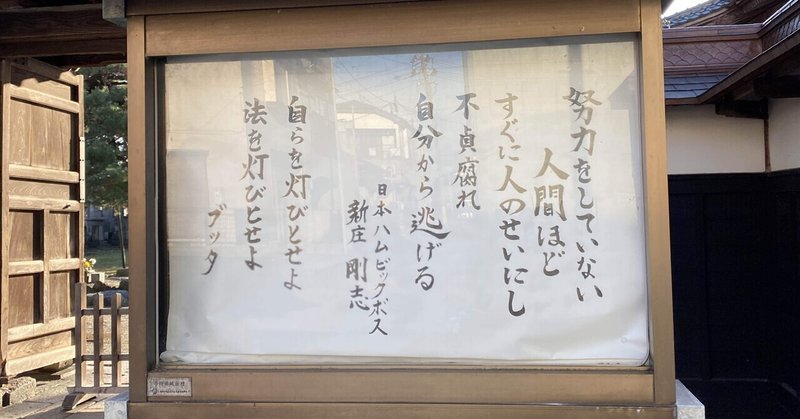 努力をしていない
人間ほど
すぐに人のせいにし
不貞腐れ
自分から逃げる
日本ハムビックボス
新庄 剛志
自らを灯びとせよ
法を灯びとせよ
ブッタ